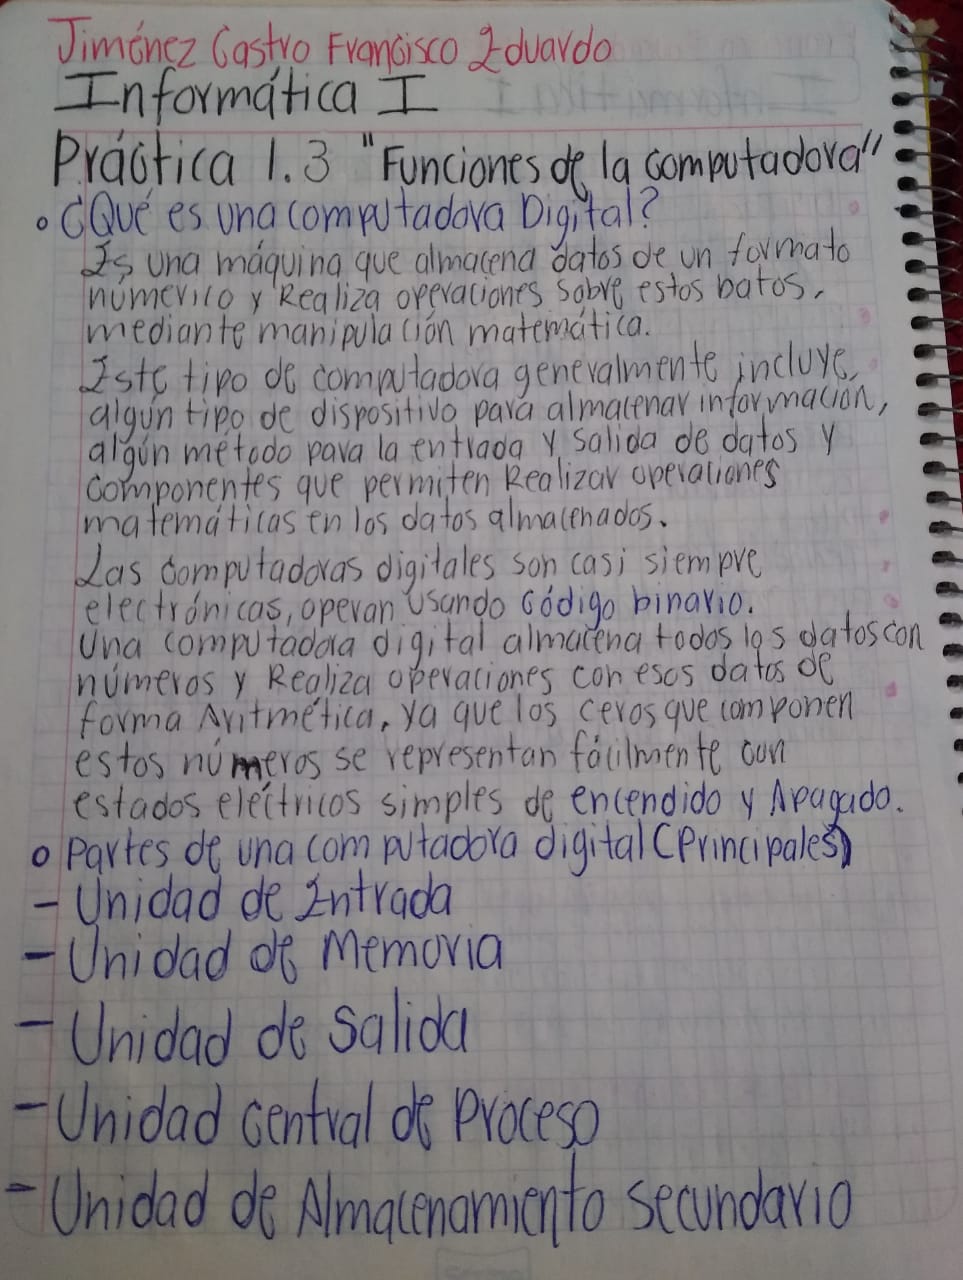 Jiménez Castro Francisco Eduardo
Informática I
Práctica 1.3 "Funciones de la computadora"
¿Qué es una computadora Digital?
Es una máquina que almacena datos de un formato
númerico y Realiza operaciones sobre estos batos,
mediante manipulación matemática.
Este tipo de computadora generalmente incluye,
algún tipo de dispositivo para almacenar información,
algún método para la entrada y salida de datos y
componentes que permiten Realizar operaciones
matemáticas en los datos almacenados.
Las computadoras digitales son casi siempre
electrónicas, operan usando código binario.
Una computadora digital almacena todos los datos con
números y Realiza operaciones con esos datos de
forma Aritmética, ya que los ceros que componen
estos números se representan fácilmente con
estados eléctricos simples de encendido y Apagado.
Partes de una computadora digital (Principales)
- Unidad de Entrada
- Unidad de Memoria
- Unidad de Salida
- Unidad Central de Proceso
- Unidad de Almacenamiento Secundario